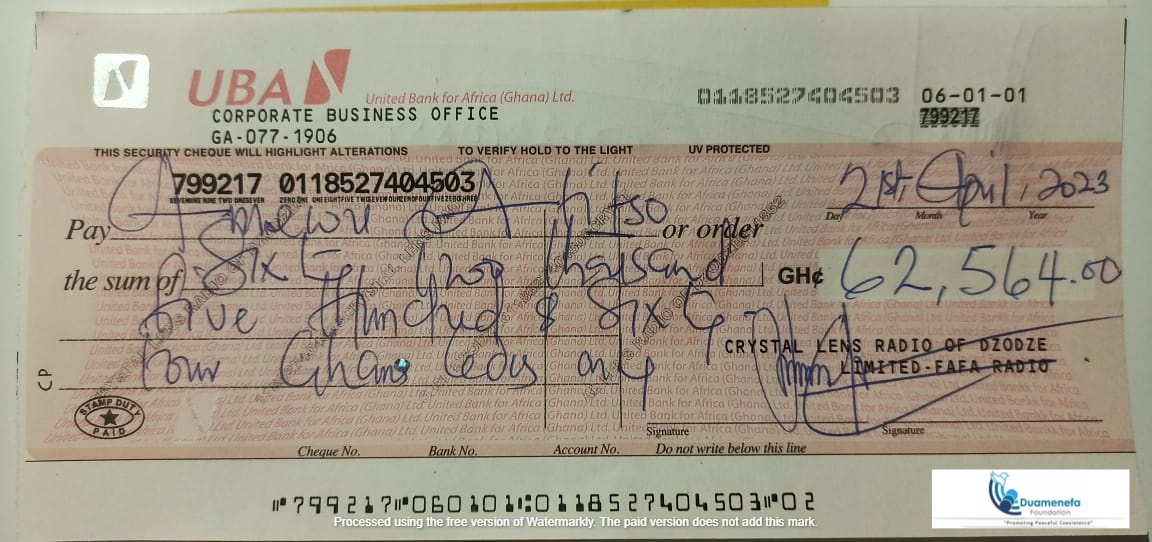 UBA
United Bank for Africa (Ghana) Ltd.
CORPORATE BUSINESS OFFICE
GA-077-1906
0118527404503 06-01-01
799217
THIS SECURITY CHEQUE WILL HIGHLIGHT ALTERATIONS TO VERIFY HOLD TO THE LIGHT UV PROTECTED
799217 0118527404503
21st, April, 2023
Day Month Year
Pay or order
the sum of Sixty two thousand GH¢ 62,564.00
Five Hundred & Sixty
Four Ghana Cedis only
CRYSTAL LENS RADIO OF DZODZE
LIMITED-FAFA RADIO
CP
STAMP DUTY
PAID
Signature Signature
Cheque No. Bank No. Account No. Do not write below this line
⑈799217⑈060101⑆0118527404503⑈02
Processed using the free version of Watermarkly. The paid version does not add this mark.
Duamenefa
Foundation
"Promoting Peaceful Coexistence"